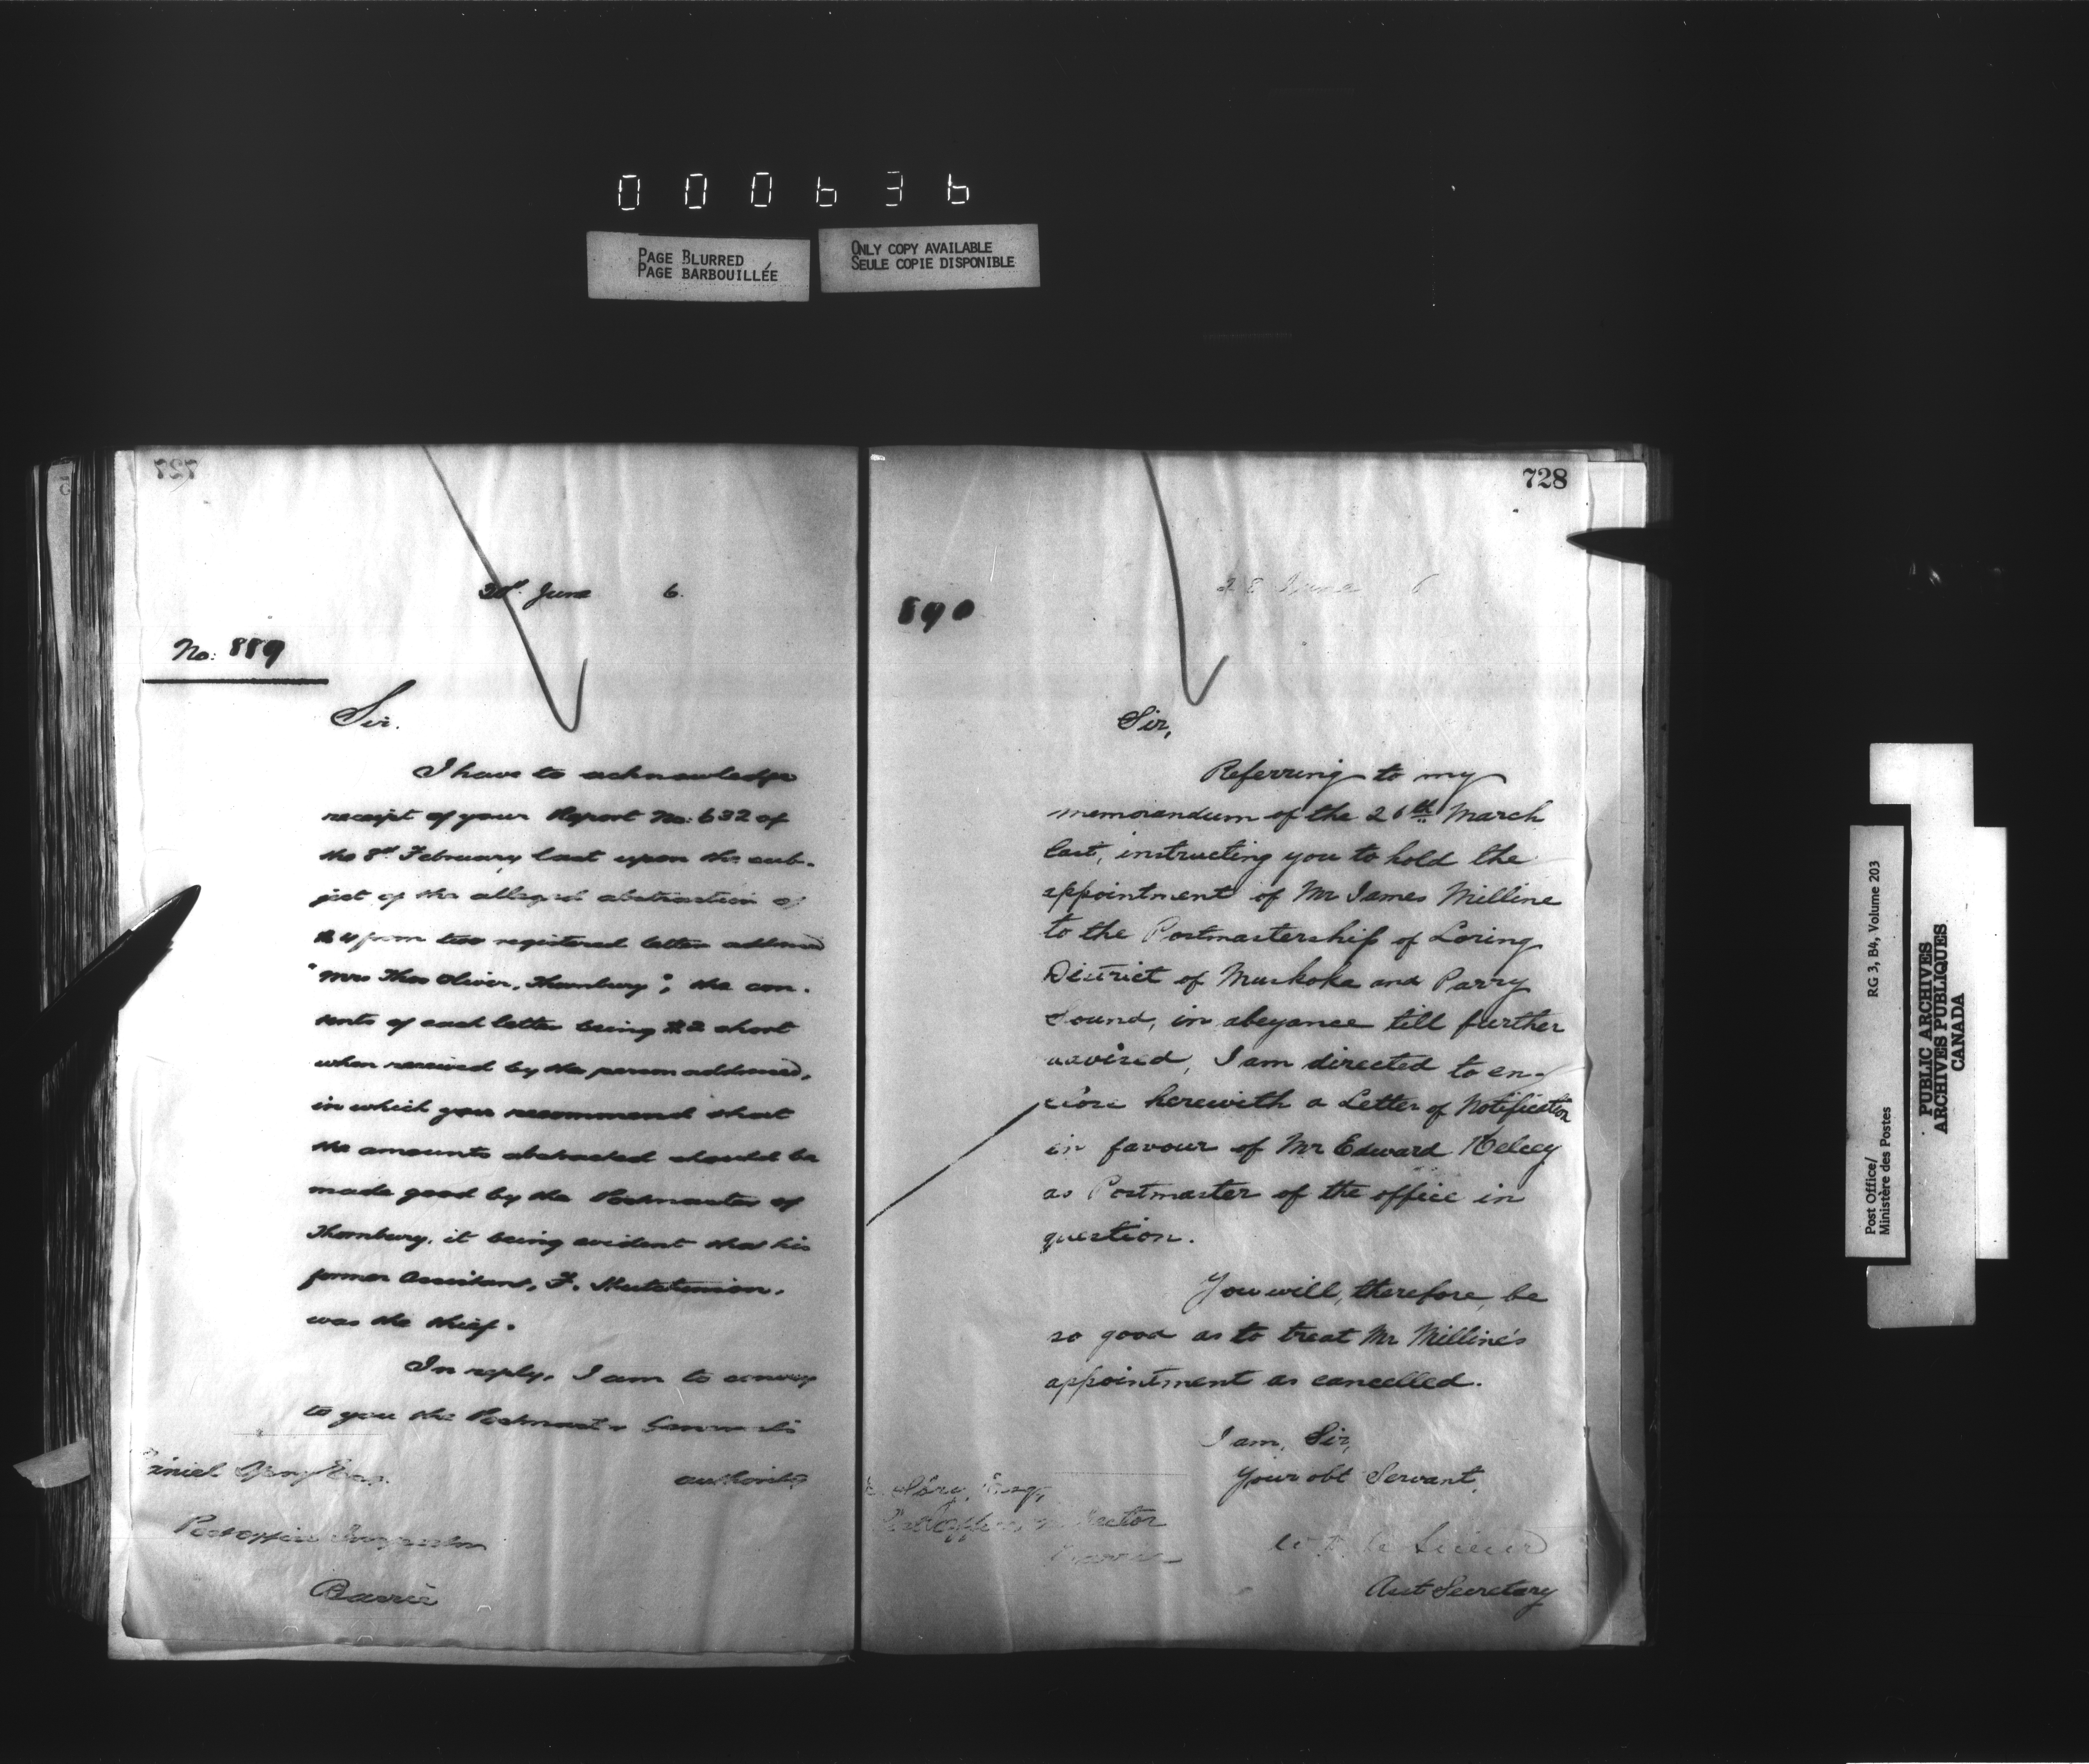 000636
PAGE BLURRED
PAGE BARBOUILLÉE
ONLY COPY AVAILABLE
SEULE COPIE DISPONIBLE
727
June 6.
No: 889
Sir.
I have to acknowledge
receipt of your Report No: 632 of
the 8th February last upon the sub-
ject of the alleged abstraction of
$4 from two registered letters addressed
"Mrs Thos Oliver, Thornbury"; the con-
tents of each letter being $2 short
when received by the person addressed,
in which you recommend that
the amounts abstracted should be
made good by the Postmaster of
Thornbury, it being evident that his
former Assistant, F.
was the thief.
In reply, I am to convey
to you the Postmaster General's
authority
Esq.
Post Office Inspector
Barrie
728
890
28 June 6
Sir,
Referring to my
memorandum of the 26th March
last, instructing you to hold the
appointment of Mr James Milline
to the Postmastership of Loring
District of Muskoka and Parry
Sound, in abeyance till further
advised, I am directed to en-
close herewith a Letter of Notification
in favour of Mr Edward Kelcey
as Postmaster of the office in
question.
You will, therefore, be
so good as to treat Mr Milline's
appointment as cancelled.
I am, Sir,
Your obt Servant,
Esq,
Post Office Inspector
Barrie
Asst Secretary
Post Office/
Ministère des Postes
RG 3, B4, Volume 203
PUBLIC ARCHIVES
ARCHIVES PUBLIQUES
CANADA